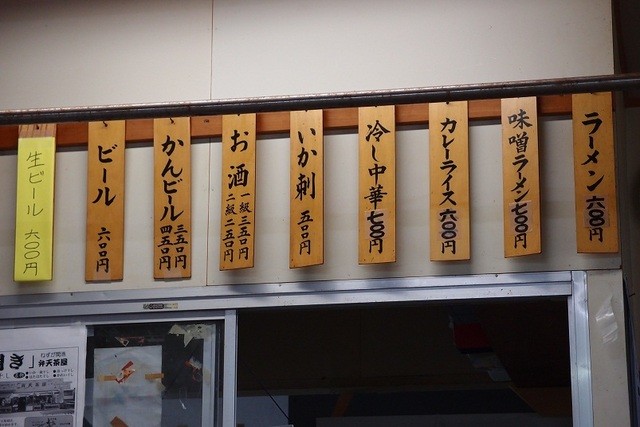 ラーメン 六〇〇円
味噌ラーメン 七〇〇円
カレーライス 六〇〇円
冷し中華 七〇〇円
いか刺 五五〇円
お酒 一級 三五〇円
二級 二五〇円
かんビール 三五〇円
四五〇円
ビール 六〇〇円
生ビール 六〇〇円
ねずが関港
弁天茶屋